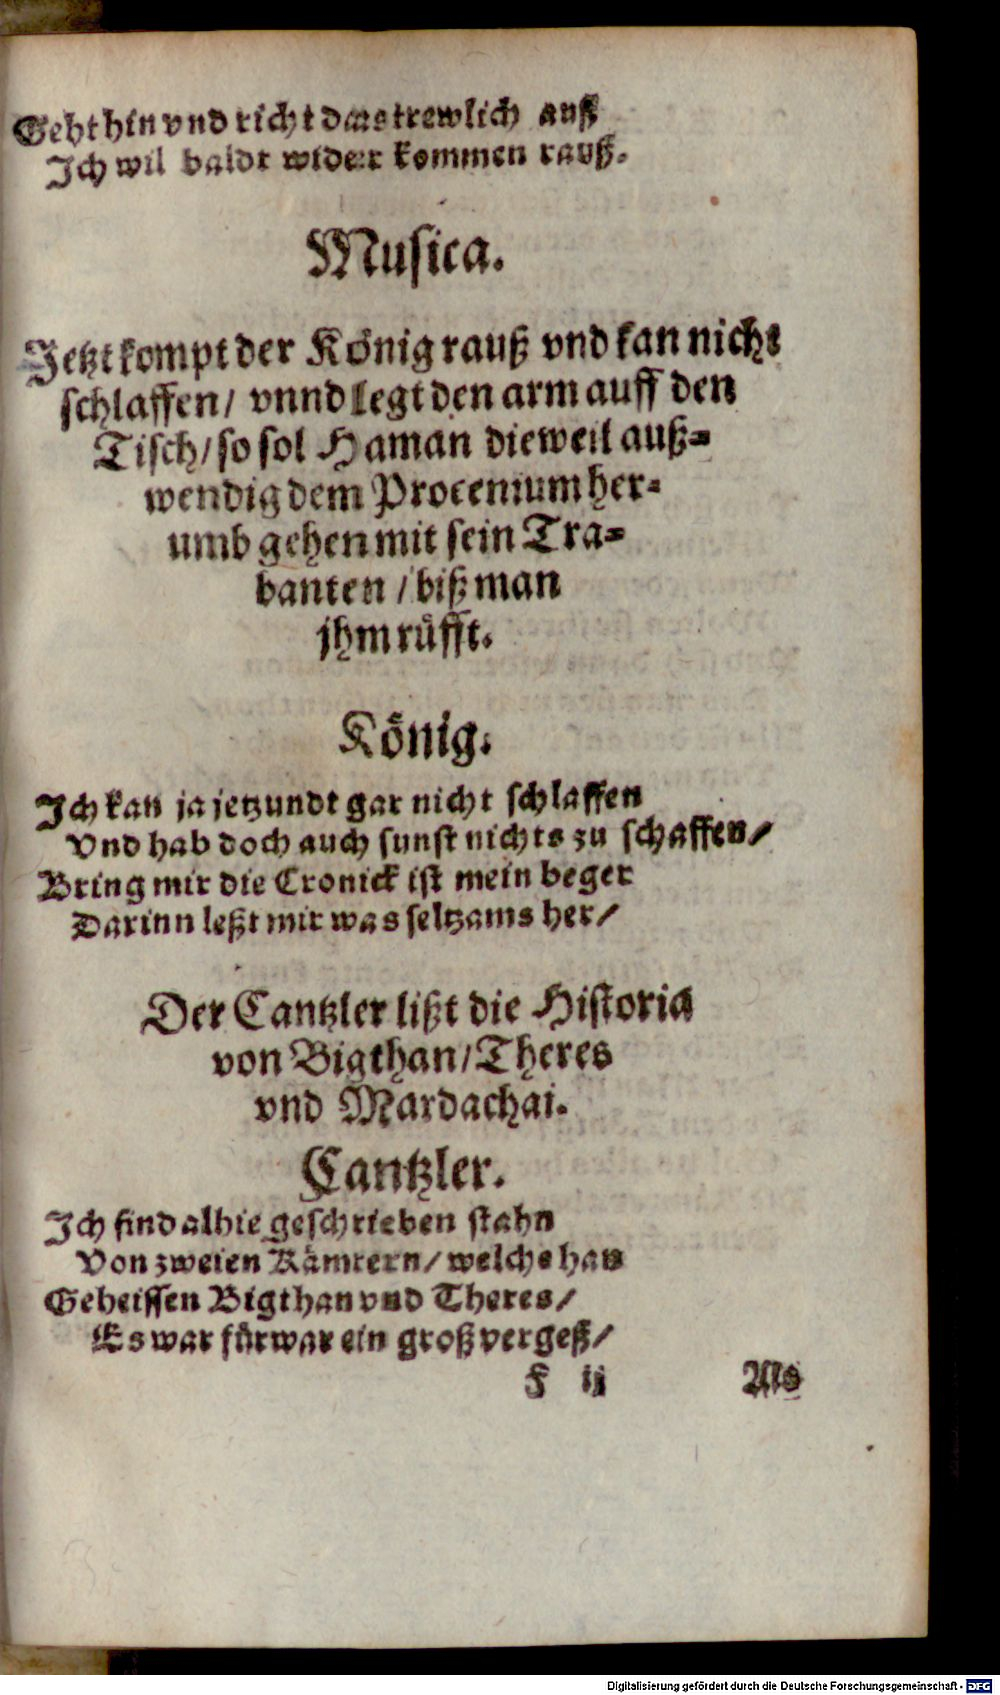 Geht hin vnd richt das trewlich auß
Ich wil baldt wider kommen rauß.
Musica.
Jetzt kompt der König rauß vnd kan nicht
schlaffen/ vnnd legt den arm auff den
Tisch/ so sol Haman dieweil auß=
wendig dem Procenium her=
umb gehen mit sein Tra=
banten / biß man
jhm rüfft.
König.
Ich kan ja jetzundt gar nicht schlaffen
Vnd hab doch auch sunst nichts zu schaffen/
Bring mir die Cronick ist mein beger
Darinn leßt mir was seltzams her/
Der Cantzler lißt die Historia
von Bigthan/ Theres
vnd Mardachai.
Cantzler.
Ich find alhie geschrieben stahn
Von zweien Kämrern/ welche han
Geheissen Bigthan vnd Theres/
Es war fürwar ein groß vergeß/
F ij Als
Digitalisierung gefördert durch die Deutsche Forschungsgemeinschaft - DFG